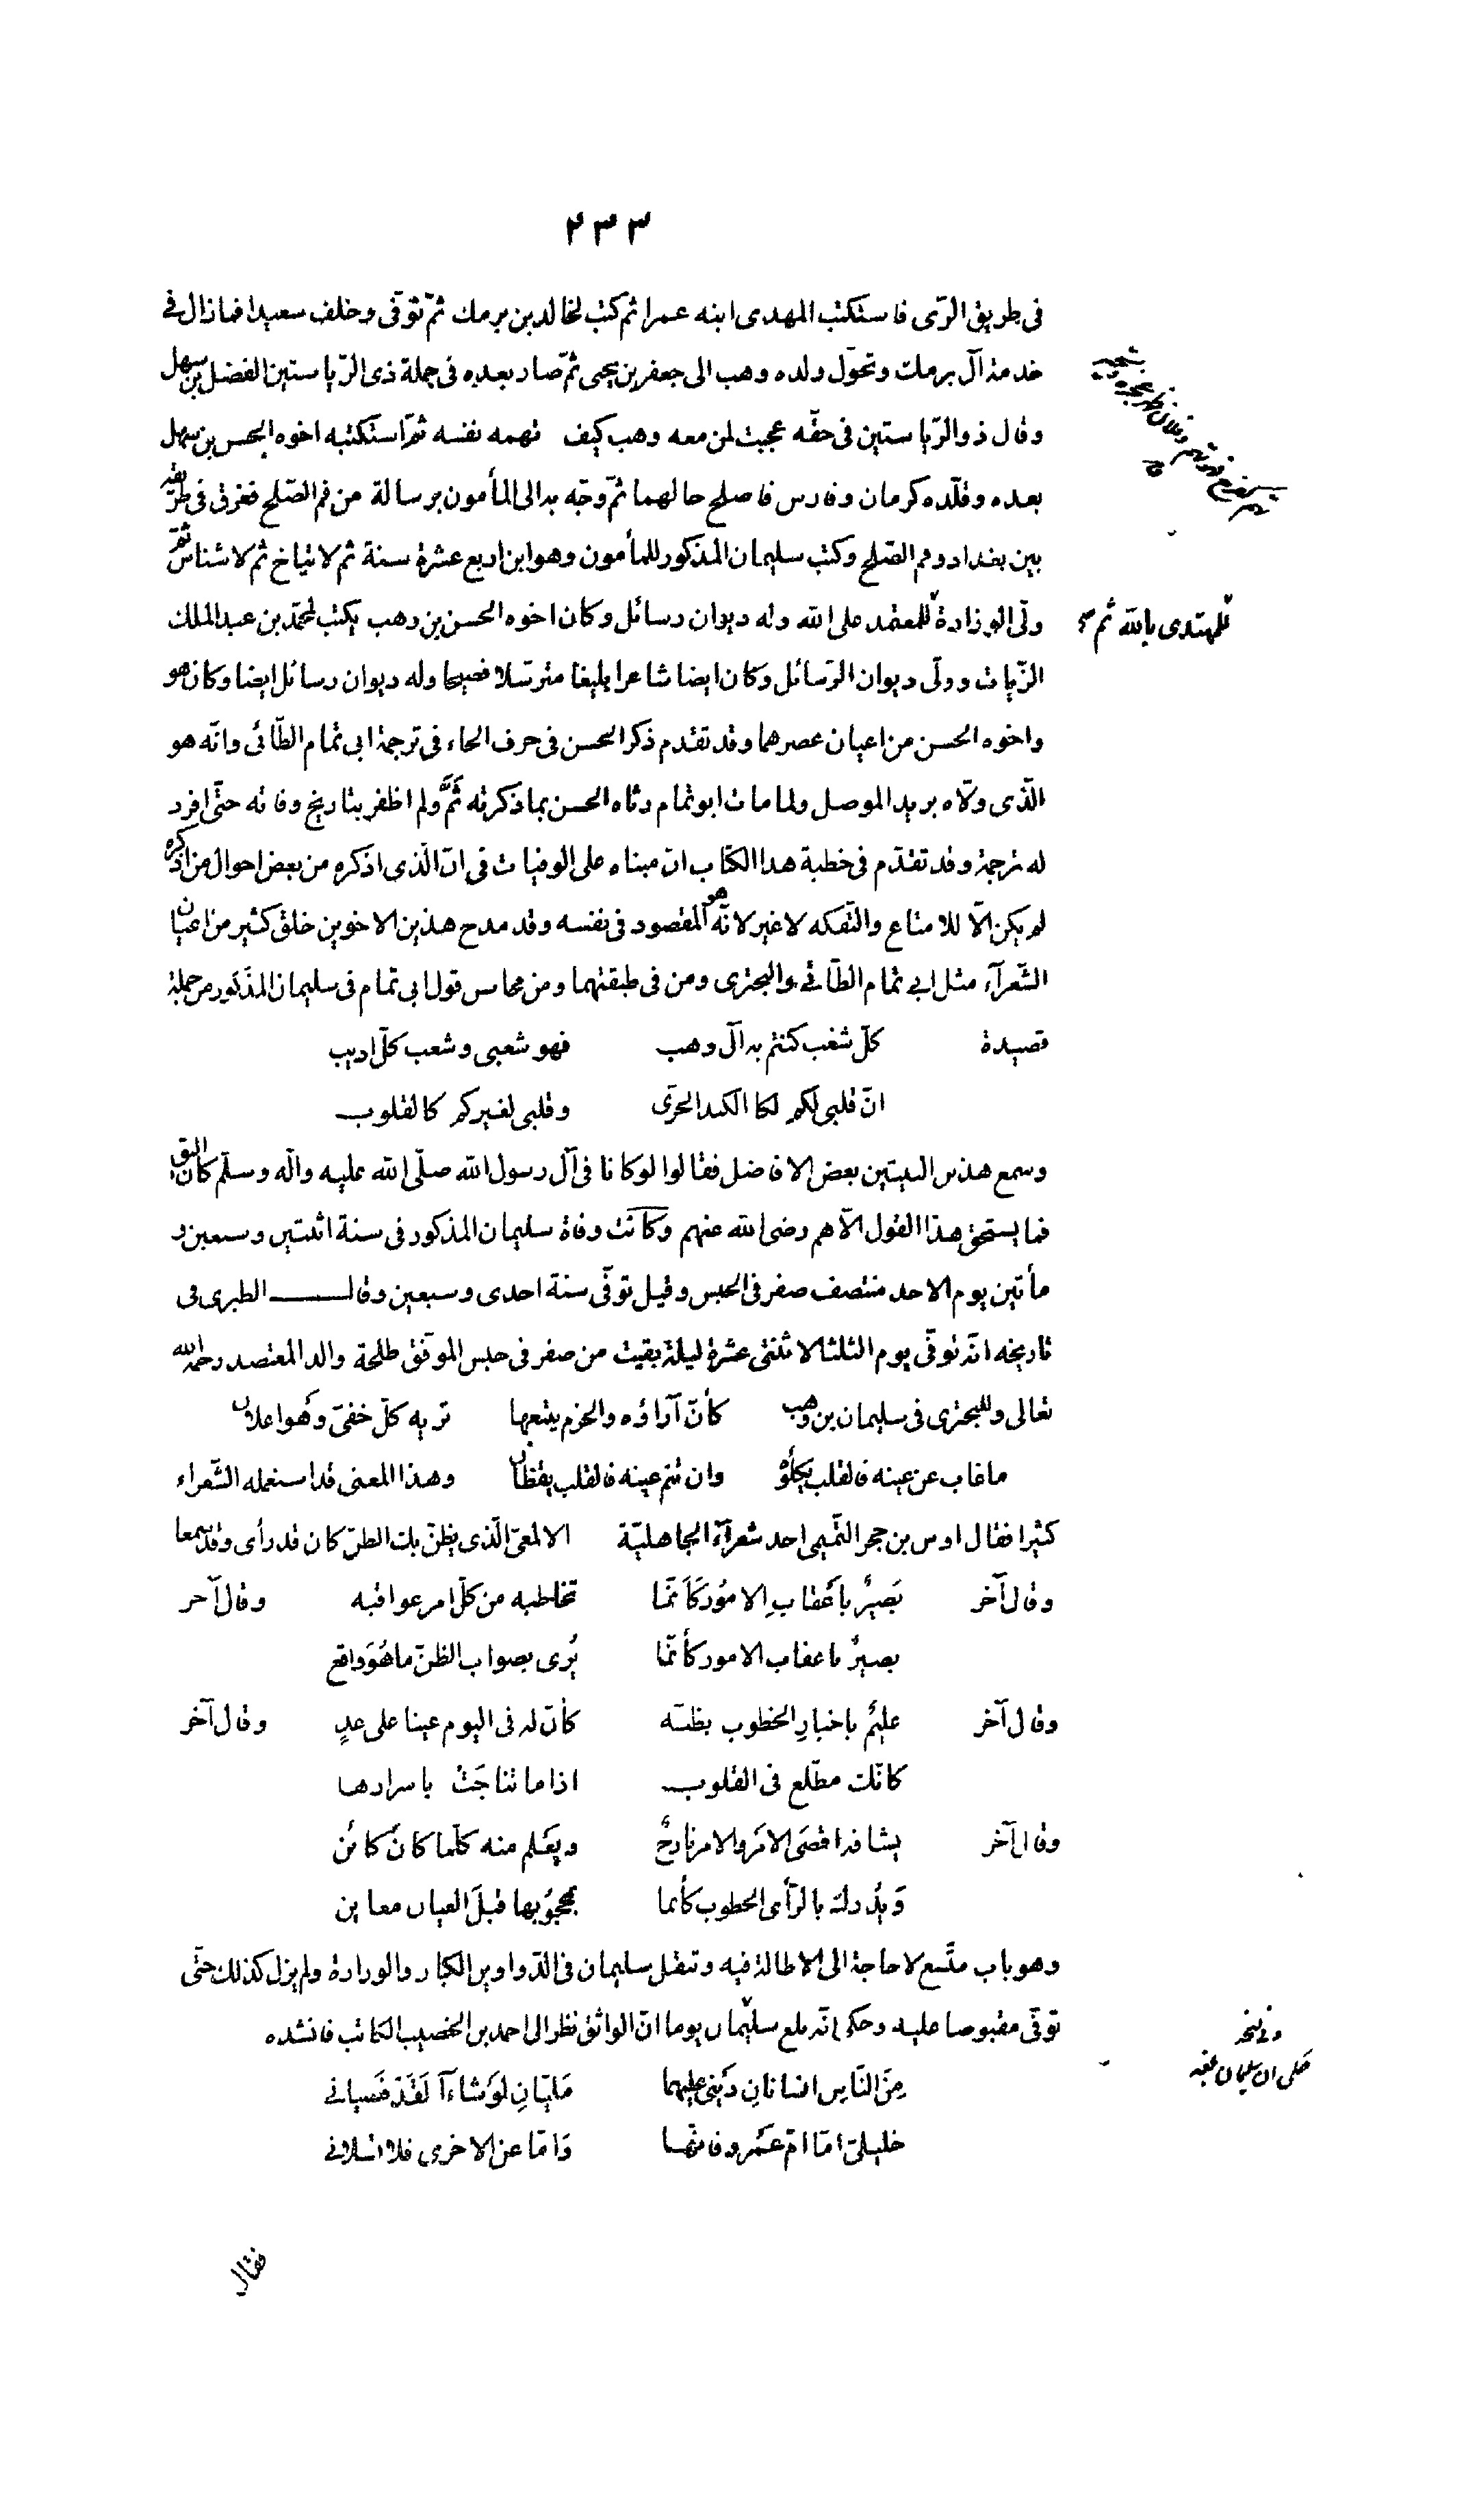 ٢٣٣
فى طريق الرّى فاستكتب المهدى ابنه عمرا ثم كتب لخالد بن برمك ثمّ توفّى وخلف سعيدا فما زال فى
خدمة آل برمك وتحوّل ولده وهب الى جعفر بن يحيى ثمّ صار بعده فى جملة ذى الرّياستين الفضل بن سهل
وقال ذو الرّياستين فى حقّه عجبت لمن معه وهب كيف تهمه نفسه ثمّ استكتبه اخوه الحسن بن سهل
بعده وقلّده كرمان وفارس فاصلح حالهما ثمّ وجّه به الى المأمون برسالة من فم الصّلح فغرق فى طريقه
بين بغداد وفم الصّلح وكتب سليمان المذكور للمأمون وهو ابن اربع عشرة سنة ثم لايتاخ ثم لاشناس ثمّ
ولّى الوزارة للمعتمد على الله وله ديوان رسائل وكان اخوه الحسن بن وهب يكتب لمحمّد بن عبد الملك
للمهتدى بالله ثم
الزّيات وولّى ديوان الرّسائل وكان ايضا شاعرا بليغا مترسّلا فصيحا وله ديوان رسائل ايضا وكان هو
واخوه الحسن من اعيان عصرهما وقد تقدم ذكر الحسن فى حرف الحاء فى ترجمة ابى تمام الطّائى وانّه هو
الّذى ولّاه بريد الموصل ولما مات ابو تمام رثاه الحسن بما ذكرته ثَمَّ ولم اظفر بتاريخ وفاته حتّى افرد
له ترجمة وقد تقدّم فى خطبة هذا الكتاب انّ مبناه على الوفيات فى انّ الّذى اذكره من بعض احوال من اذكره
لم يكن الّا للامتاع والتّفكه لا غير لانّه هو المقصود فى نفسه وقد مدح هذين الاخوين خلق كثير من اعيان
الشّعرآء مثل ابى تمام الطّائى والبحترى ومن فى طبقتهما ومن محاسن قول ابى تمام فى سليمان المذكور من جملة
قصيدة كلّ شعب كنتم به آل وهب فهو شعبى وشعب كلّ اديب
انّ قلبى لكم لكا الكبد الحرّى وقلبى لغيركم كالقلوب
وسمع هذين البيتين بعض الافاضل فقالوا لو كانا فى آل رسول الله صلّى الله عليه واله وسلّم كان اليق
فما يستحق هذا القول الّا هم رضى الله عنهم وكانت وفاة سليمان المذكور فى سنة اثنتين وسبعين و
مأتين يوم الاحد منتصف صفر فى الحبس وقيل توفّى سنة احدى وسبعين وقال الطبرى فى
تاريخه انّه توفّى يوم الثلثا لاثنتى عشرة ليلة بقيت من صفر فى حبس الموفّق طلحة والد المعتصد رحمه الله
تعالى وللبحترى فى سليمان بن وهب كأنّ آراؤه والحزم يتبعها تريه كلّ خفىّ وهو اعلان
ما غاب عن عينه فالقلب يكلؤه وان تنم عينه فالقلب يقظان وهذا المعنى قد استعمله الشّعراء
كثيرا فقال اوس بن حجر التّميمى احد شعرآء الجاهليّة الالمعىّ الّذى يظنّ بك الظنّ كان قد رأى وقد سمعا
وقال آخر بَصيرٌ بأَعقابِ الامُور كَأنّما تخاطبه من كلّ امر عواقبه وقال آخر
بصيرٌ باعقاب الامور كأنّما يُرى بصواب الظنّ ما هُوَ واقع
وقال آخر عليمٌ باخبارِ الخطوب بظنّه كأنّ له فى اليوم عينا على غدٍ وقال آخر
كانّك مطّلع فى القلوب اذا ما تناجَتْ باسرارها
وقال آخر ويعَلم منه كلّما كان كائن
وَيُدرك بالرّأى الخطوب كأنما قبلَ العيان معاين
وهو باب متّسع لا حاجة الى الاطالة فيه وتنقل سليمان فى الدّواوين الكبار والوزارة ولم يزل كذلك حتّى
توفّى مقبوضا عليه وحكى انّه بلغ سليمان يوما انّ الواثق نظر الى احمد بن الخصيب الكاتب فانشده
مِنَ النّاسِ انسانانِ دَينى عليهما مَليّانِ لَو شاءآ لَقَد قَضَيانى
خليلىّ امّا امّ عَمرو فانّها وَامّا عن الاخرى فلا تسلانى
وفى نسخة
حكى ان سليمان
فقال